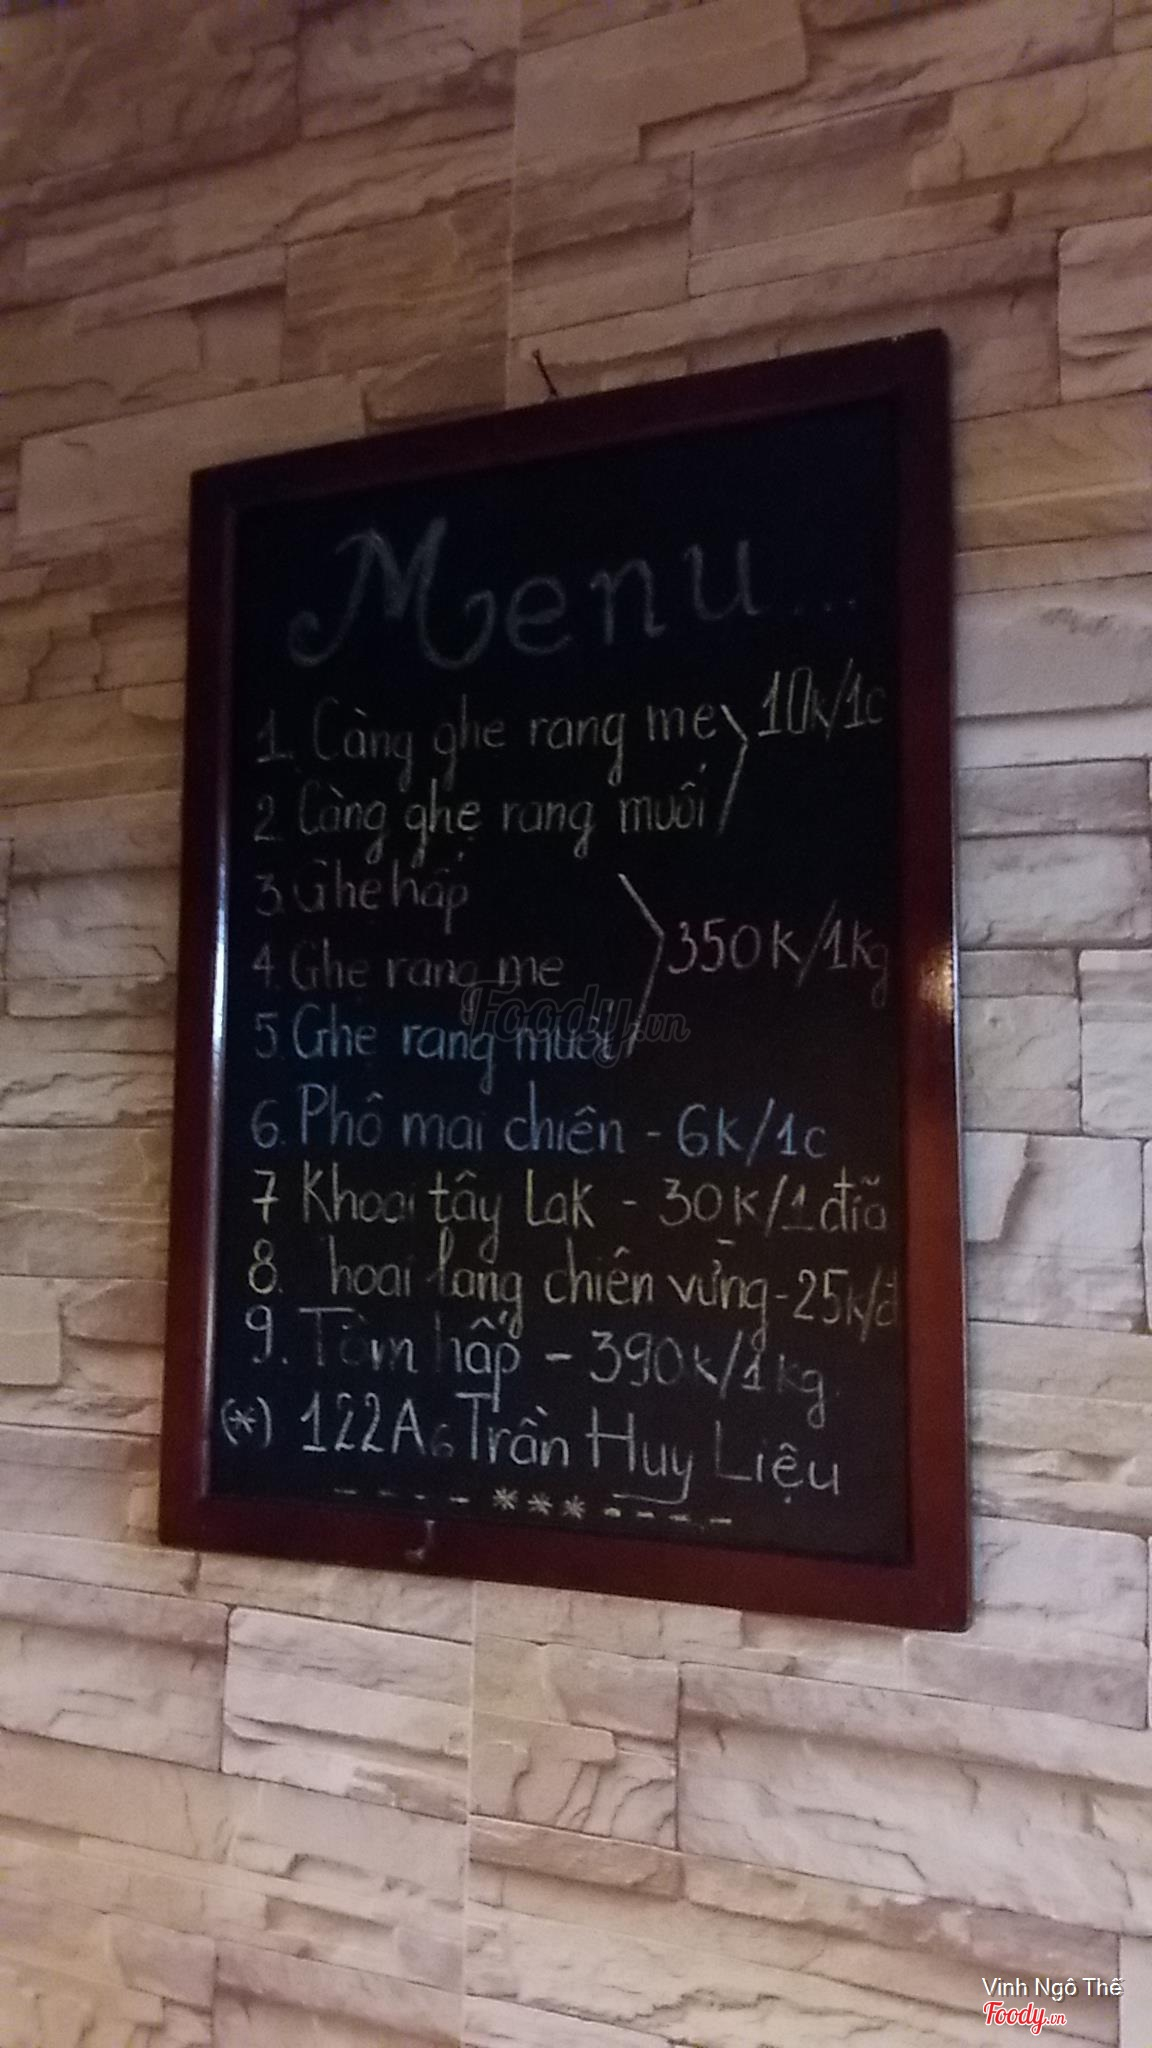 Menu...
1. Càng ghẹ rang me 10k/1c
2. Càng ghẹ rang muối
3. Ghẹ hấp
4. Ghẹ rang me 350K/1Kg
5. Ghẹ rang muối
6. Phô mai chiên - 6K/1c
7 Khoai tây lak - 30K/1 đĩa
8. hoai lang chiên vừng - 25k/đ
9. Tôm hấp - 390k/1kg.
(*) 122A6 Trần Huy Liệu
- - - - * * * - - - -
Foody.vn
Vinh Ngô Thế
Foody.vn